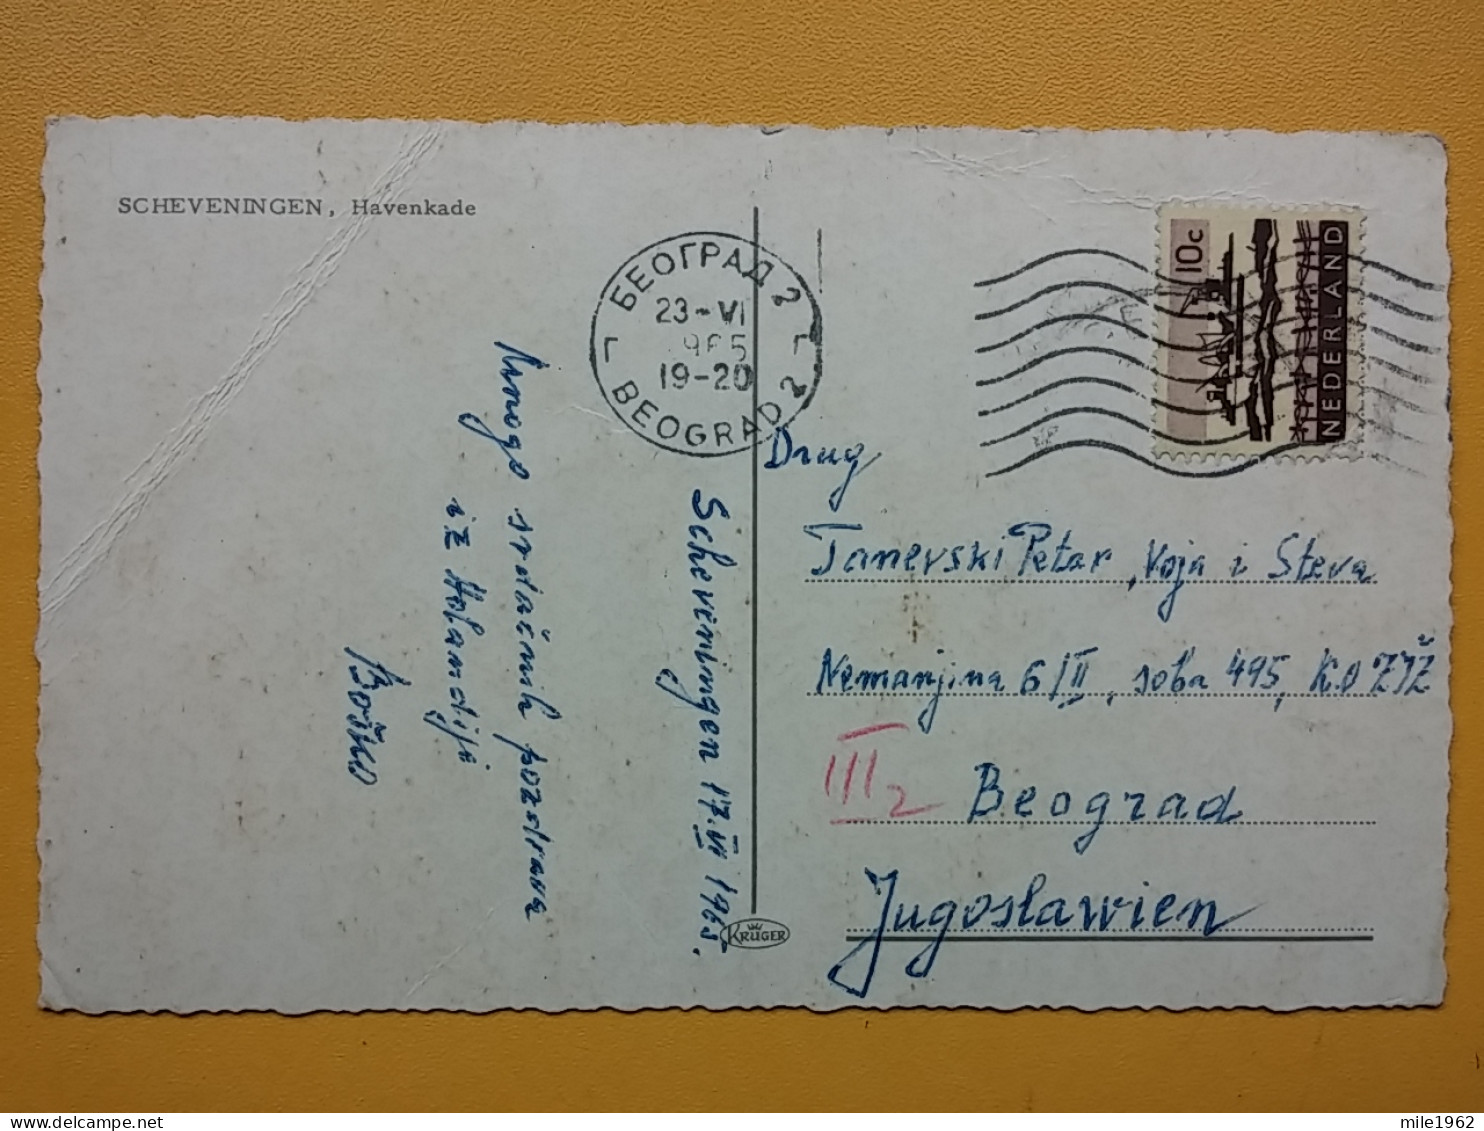 SCHEVENINGEN, Havenkade
БЕОГРАД 2
23-VI
1965
19-20
BEOGRAD 2
10c
NEDERLAND
Scheveningen 17.VI 1965.
Mnogo srdačnih pozdrava
iz Holandije
Boško
Drug
Tanevski Petar, Voja i Steva
Nemanjina 6/II, soba 495, K.O ZJŽ
III2 Beograd
Jugoslawien
KRUGER
mile1962